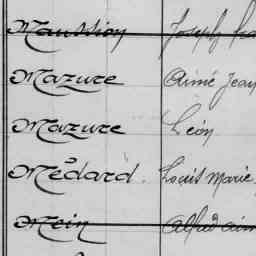 Maussion Joseph
Mazure Aimé Jean
Mazure Léon
Médard. Louis Marie
Mein Alfred